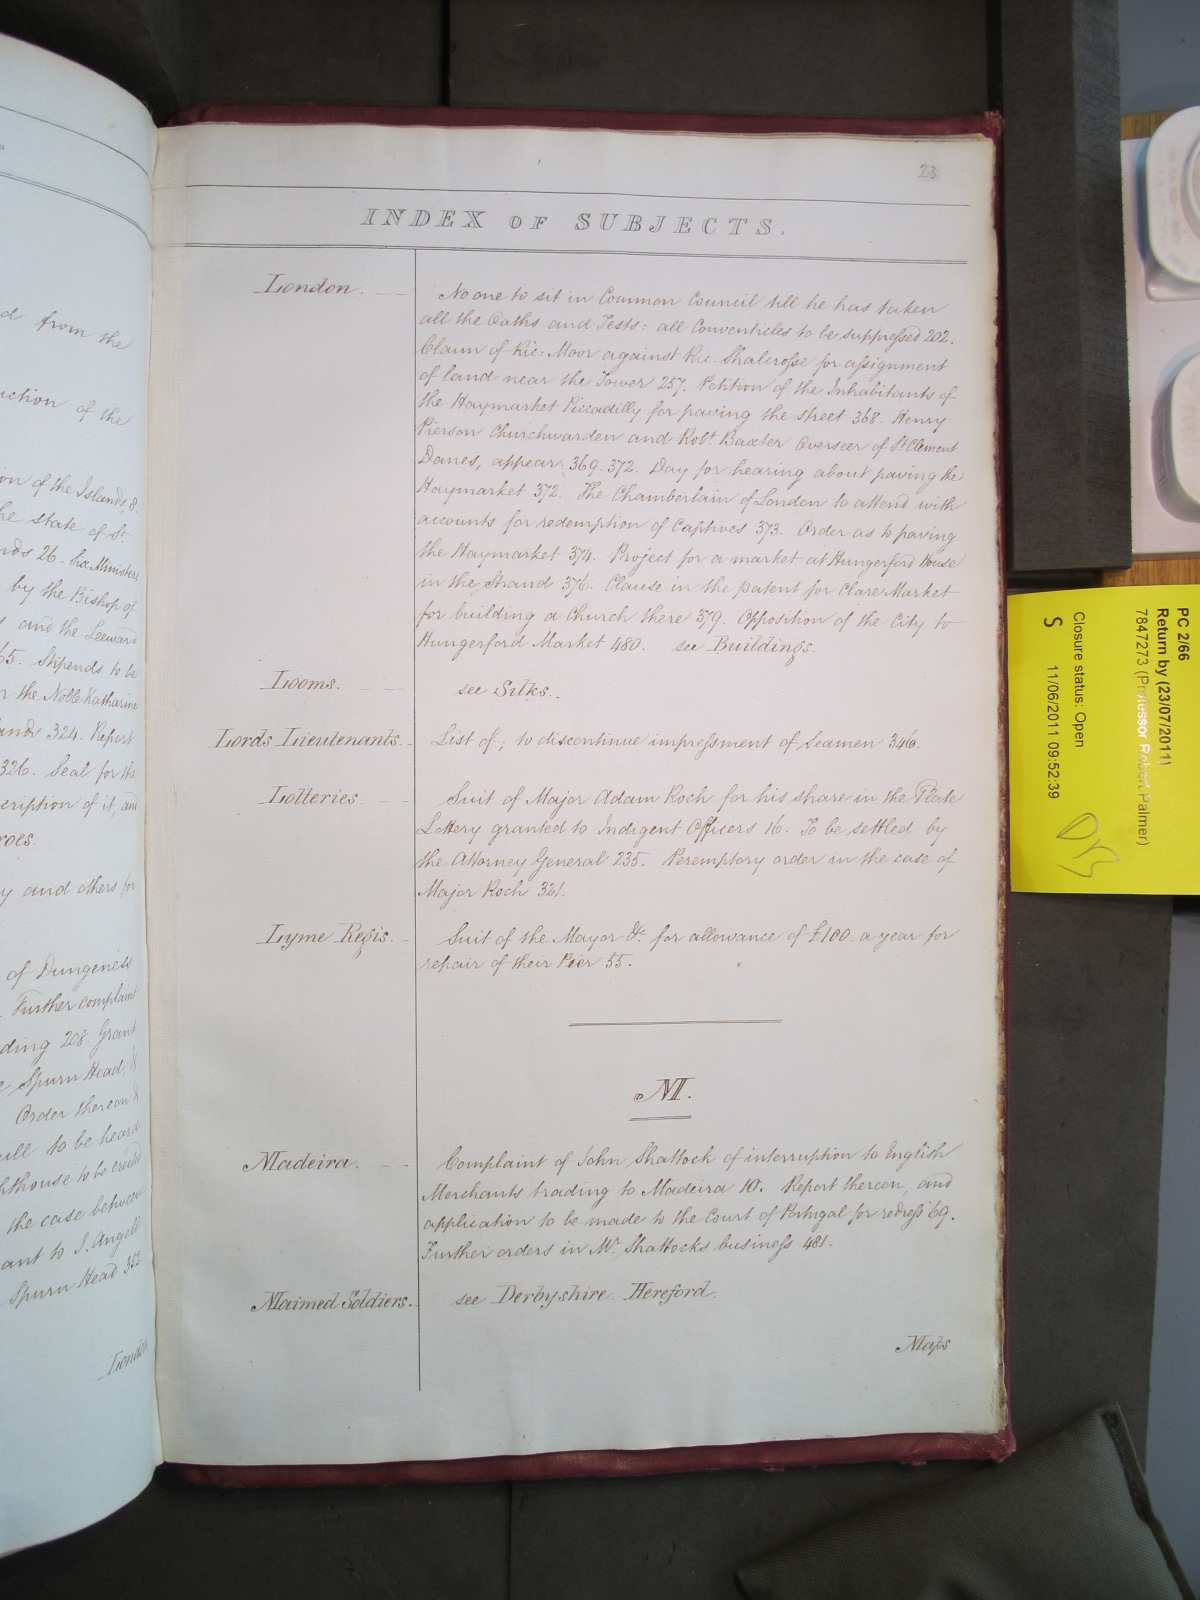 d from the
uction of the
on of the Islands, 8.
he state of St.
nds 26. Six Ministers
by the Bishop of
and the Leeward
65. Stipends to be
the Noble Katharine
ands 324. Report
326. Seal for the
cription of it, and
roes.
y and others for
of Dungeness
Further complaint
ding 208. Grant
Spurn Head, &
Order thereon &
ull to be heard
hthouse to be erected
the case between
ant to J. Angell
Spurn Head 352
London
23
INDEX OF SUBJECTS.
London.
No one to sit in Common Council till he has taken
all the Oaths and Tests: all Conventicles to be suppressed 202.
Claim of Ric: Moor against Ric. Shalcrosse for assignment
of land near the Tower 257. Petition of the Inhabitants of
the Haymarket Piccadilly for paving the street 368. Henry
Pierson Churchwarden and Robt. Baxter Overseer of St. Clement
Danes, appear 369. 372. Day for hearing about paving the
Haymarket 372. The Chamberlain of London to attend with
accounts for redemption of Captives 373. Order as to paving
the Haymarket 374. Project for a market at Hungerford House
in the Strand 376. Clause in the patent for Clare Market
for building a Church there 379. Opposition of the City to
Hungerford Market 480. see Buildings.
Looms.
see Silks.
Lords Lieutenants.
List of; to discontinue impressment of Seamen 346.
Lotteries.
Suit of Major Adam Roch for his share in the Plate
Lottery granted to Indigent Officers 16. To be settled by
the Attorney General 235. Peremptory order in the case of
Major Roch 321.
Lyme Regis.
Suit of the Mayor &c. for allowance of £100. a year for
repair of their Peer 55.
M.
Madeira.
Complaint of John Shattock of interruption to English
Merchants trading to Madeira 10. Report thereon, and
application to be made to the Court of Portugal for redress 69.
Further orders in Mr. Shattocks business 481.
Maimed Soldiers.
see Derbyshire. Hereford.
Maps
PC 2/66
Return by (23/07/2011)
7847273 (Professor Robert Palmer)
Closure status: Open
S 11/06/2011 09:52:39